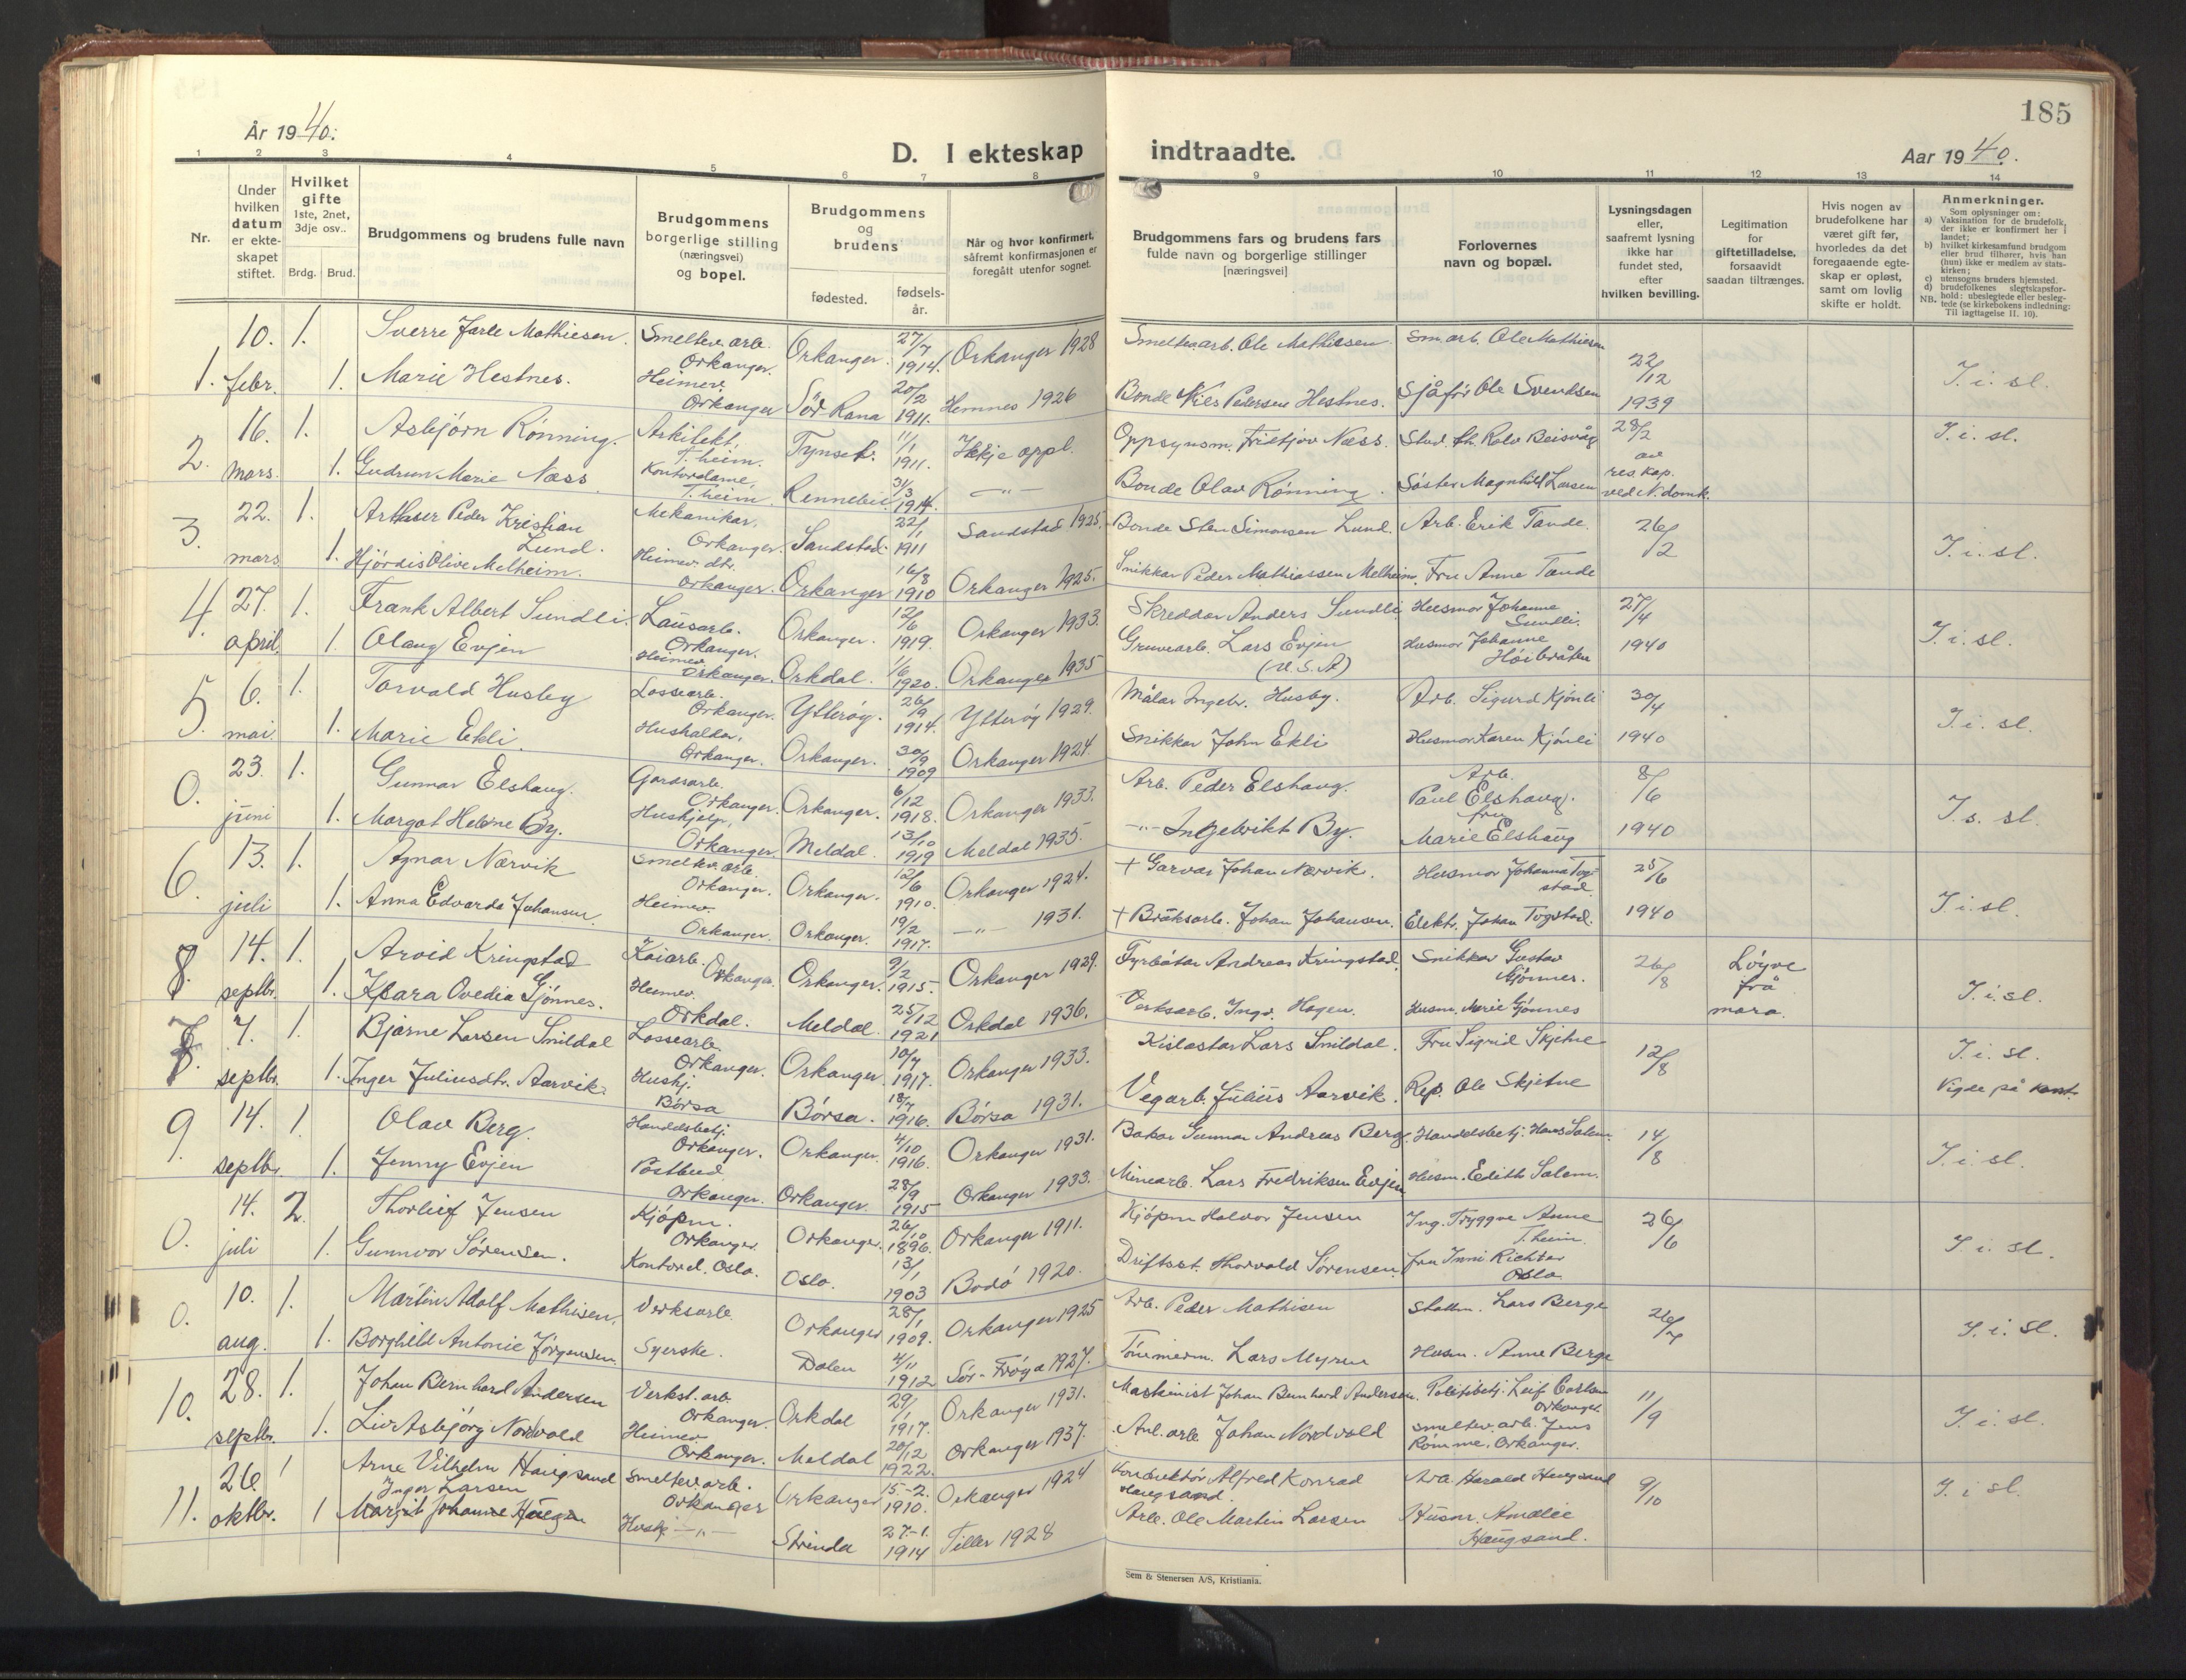 185
År 1940.
D. I ekteskap indtraadte.
Aar 1940.
1 2 3 4 5 6 7 8 9 10 11 12 13 14
Nr.
Under hvilken datum er ekteskapet stiftet.
Hvilket gifte 1ste, 2net, 3dje osv..
Brdg. Brud.
Brudgommens og brudens fulle navn
Brudgommens borgerlige stilling (næringsvei) og bopel.
Brudgommens og brudens
fødested.
fødselsår.
Når og hvor konfirmert, såfremt konfirmasjonen er foregått utenfor sognet.
Brudgommens fars og brudens fars fulde navn og borgerlige stillinger [næringsvei]
Forlovernes navn og bopæl.
Lysningsdagen eller, saafremt lysning ikke har fundet sted, efter hvilken bevilling.
Legitimation for giftetilladelse, forsaavidt saadan tiltrænges.
Hvis nogen av brudefolkene har været gift før, hvorledes da det foregaaende egteskap er opløst, samt om lovlig skifte er holdt.
Anmerkninger.
Som oplysninger om:
a) Vaksination for de brudefolk, der ikke er konfirmert her i landet;
b) hvilket kirkesamfund brudgom eller brud tilhører, hvis han (hun) ikke er medlem av statskirken;
c) utensogns bruders hjemsted.
d) brudefolkenes slegtskapsforhold: ubeslegtede eller beslegtede (se kirkebokens indledning:
NB. Til iagttagelse II. 10).
1. 10. febr. 1. Sverre Jarle Mathiesen. Smeltev. arb. Orkanger. Orkanger. 27/7 1914. Orkanger 1928 Smeltev. arb. Ole Mathiesen. Sm. arb. Ole Mathiesen 22/12 1939 I. i. sl.
1. Marie Hestnes. Heimev. Orkanger Sör Rana 20/2 1911. Hemnes 1926 Bonde Nils Pedersen Hestnes. Sjåfør Ole Svendsen
2. 16. mars. 1. Asbjørn Rønning. Arkitekt, T.heim. Tynset. 11/1 1911. Ikkje oppl. Oppsynsm. Fridtjov Næss. Stud. Rolv Beisvåg 28/2 av res. kap. ved N. domk. I. i. sl.
1. Gudrun Marie Næss. Kontordame, T.heim Rennebu 31/3 1914. —"— Bonde Olav Rønning. Søster Magnhild Larsen
3. 22. mars 1. Arthur Peder Kristian Lund. Mekanikar, Orkanger. Sandstad. 22/1 1911 Sandstad 1925. Bonde Sten Simonsen Lund. Arb. Erik Tande. 26/2 I. i. sl.
1. Hjørdis Olive Melheim. Heimev. dtr. Orkanger. Orkanger 16/8 1910 Orkanger 1925. Snikkar Peder Mathiassen Melheim. Fru Anne Tande
4. 27. april. 1. Frank Albert Sundli. Lausarb. Orkanger. Orkanger. 12/6 1919. Orkanger 1933. Skreddar Anders Sundli. Husmor Johanne Sundli. 27/4 1940 I. i. sl.
1. Olaug Evjen Heimev. Orkanger. Orkdal. 1/6 1920. Orkanger 1935 Gruvearb. Lars Evjen (U.S.A) Husmor Johanne Høibråten
5. 6. mai 1. Torvald Husby Lossearb. Orkanger. Ytterøy. 26/9 1914. Ytterøy 1929. Målar Ingebr. Husby. Arb. Sigurd Kjønli 30/4 1940 I. i. sl.
1. Marie Ekli. Hushaldar, Orkanger. Orkanger. 30/9 1909 Orkanger 1924. Snikkar John Ekli Husmor Karen Kjønli
0. 23. juni 1. Gunnar Elshaug. Gardsarb. Orkanger. Orkanger. 6/12 1918. Orkanger 1933. Arb. Peder Elshaug. Arb. Paul Elshaug. 8/6 1940 I. s. sl.
1. Margot Helene By. Hushjelp, Orkanger. Meldal. 13/10 1919 Meldal 1935. —"— Ingebrikt By. fru Marie Elshaug
6. 13. juli 1. Agnar Nærvik Smeltev. arb. Orkanger. Orkanger. 12/6 1910. Orkanger 1924. + Garvar Johan Nærvik. Husmor Johanna Togstad 25/6 1940 I. i. sl.
1. Anna Edvarda Johansen. Heimev. Orkanger. Orkanger. 19/2 1917. —"— 1931. + Bruksarb. Johan Johansen. Elektr. Johan Togstad.
8. 14. septbr. 1. Arvid Kringstad Kaiarb. Orkanger Orkanger. 9/2 1915. Orkanger 1929. Fyrbøtar Andreas Kringstad. Snikkar Gustav Gjønnes. 26/8 Løyve frå mora. I. i. sl.
1. Klara Ovedia Gjønnes. Heimev. Orkdal. Meldal. 25/12 1921 Orkdal 1936. Verksarb. Ingv. Hagen. Husm. Marie Gjønnes
7. 7. septbr. 1. Bjarne Larsen Snildal Lossearb. Orkanger. Orkanger. 10/7 1917. Orkanger 1933. Kislastar Lars Snildal. Fru Sigrid Skjetne 12/8 I. i. sl. Vigde på kont.
1. Inger Juliusdtr. Aarvik. Hushj. Børsa Børsa. 18/7 1916. Børsa 1931. Vegarb. Julius Aarvik. Rep. Ole Skjetne
9. 14. septbr. 1. Olav Berg. Handelsbetj. Orkanger. Orkanger. 4/10 1916. Orkanger 1931. Bakar Gunnar Andreas Berg. Handelsbetj. Hans Salem. 14/8 I. i. sl.
1. Jenny Evjen Postbud Orkanger. Orkanger. 28/9 1915 Orkanger 1933. Minearb. Lars Fredriksen Evjen Husm. Edith Salem.
0. 14. juli 2. Thorlief Jensen Kjøpm. Orkanger Orkanger. 26/10 1896. Orkanger 1911. Kjøpm Halvor Jensen Ing. Tryggve Anne T.heim. 26/6 I. i. sl.
1. Gunnvor Sørensen. Kontord. Oslo. Oslo. 13/1 1903 Bodø 1920. Driftsst. Thorvald Sørensen. fru Inni Richter Oslo
0. 10. aug. 1. Martin Adolf Mathisen. Verksarb. Orkanger 28/1 1909. Orkanger 1925 Arb. Peder Mathisen Stallm. Lars Berge 26/7 I. i. sl.
1. Borghild Antonie Jörgensen. Syerske. Dalen 4/11 1912 Sør-Frøya 1927. Lars Myren Husm. Anne Berge
10. 28. septbr. 1. Johan Bernhard Andersen Verkst. arb. Orkanger. Orkdal 29/1 1917. Orkanger 1931. Maskinist Johan Bernhard Andersen. Politibetj. Leif Carlsen Orkanger. 11/9 I. i. sl.
1. Liv Asbjørg Nordvald Heimev. Orkanger. Meldal 20/12 1922. Orkanger 1937. Anl. arb. Johan Nordvald Smeltev. arb. Jens Rømme. Orkanger.
11. 26. oktbr. 1 Arne Vilhelm Haugsand Smeltev. arb. Orkanger Orkanger 15.-2. 1910. Orkanger 1924 Konduktør Alfred Konrad Haugsand. Arb. Harald Haugsand 9/10 I. i sl.
1 Inger Larsen Margit Johanne Haugen Hushj. —"— Strinda 27.-1. 1914 Tiller 1928 Arb. Ole Martin Larsen Husm. Amalie Haugsand.
Sem & Stenersen A/S, Kristiania.